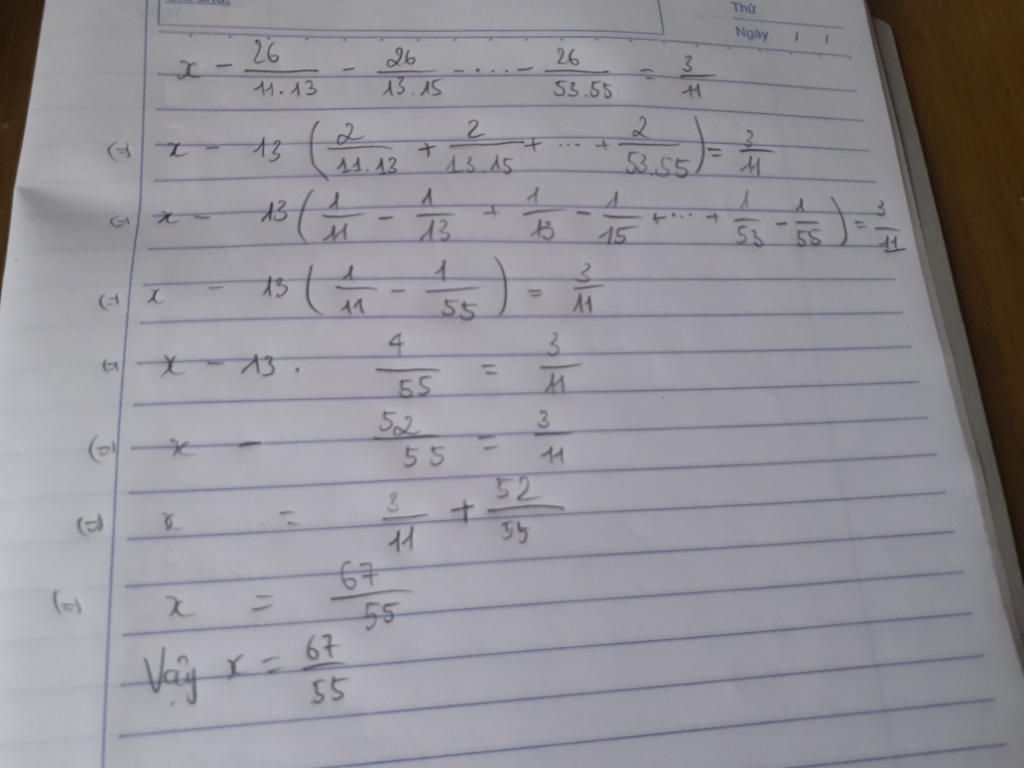 Thứ
Ngày / /
x - 26/11.13 - 26/13.15 - ... - 26/53.55 = 3/11
(=) x - 13 (2/11.13 + 2/13.15 + ... + 2/53.55) = 3/11
(=) x - 13 (1/11 - 1/13 + 1/13 - 1/15 + ... + 1/53 - 1/55) = 3/11
(=) x - 13 (1/11 - 1/55) = 3/11
(=) x - 13 . 4/55 = 3/11
(=) x - 52/55 = 3/11
(=) x = 3/11 + 52/55
(=) x = 67/55
Vậy x = 67/55